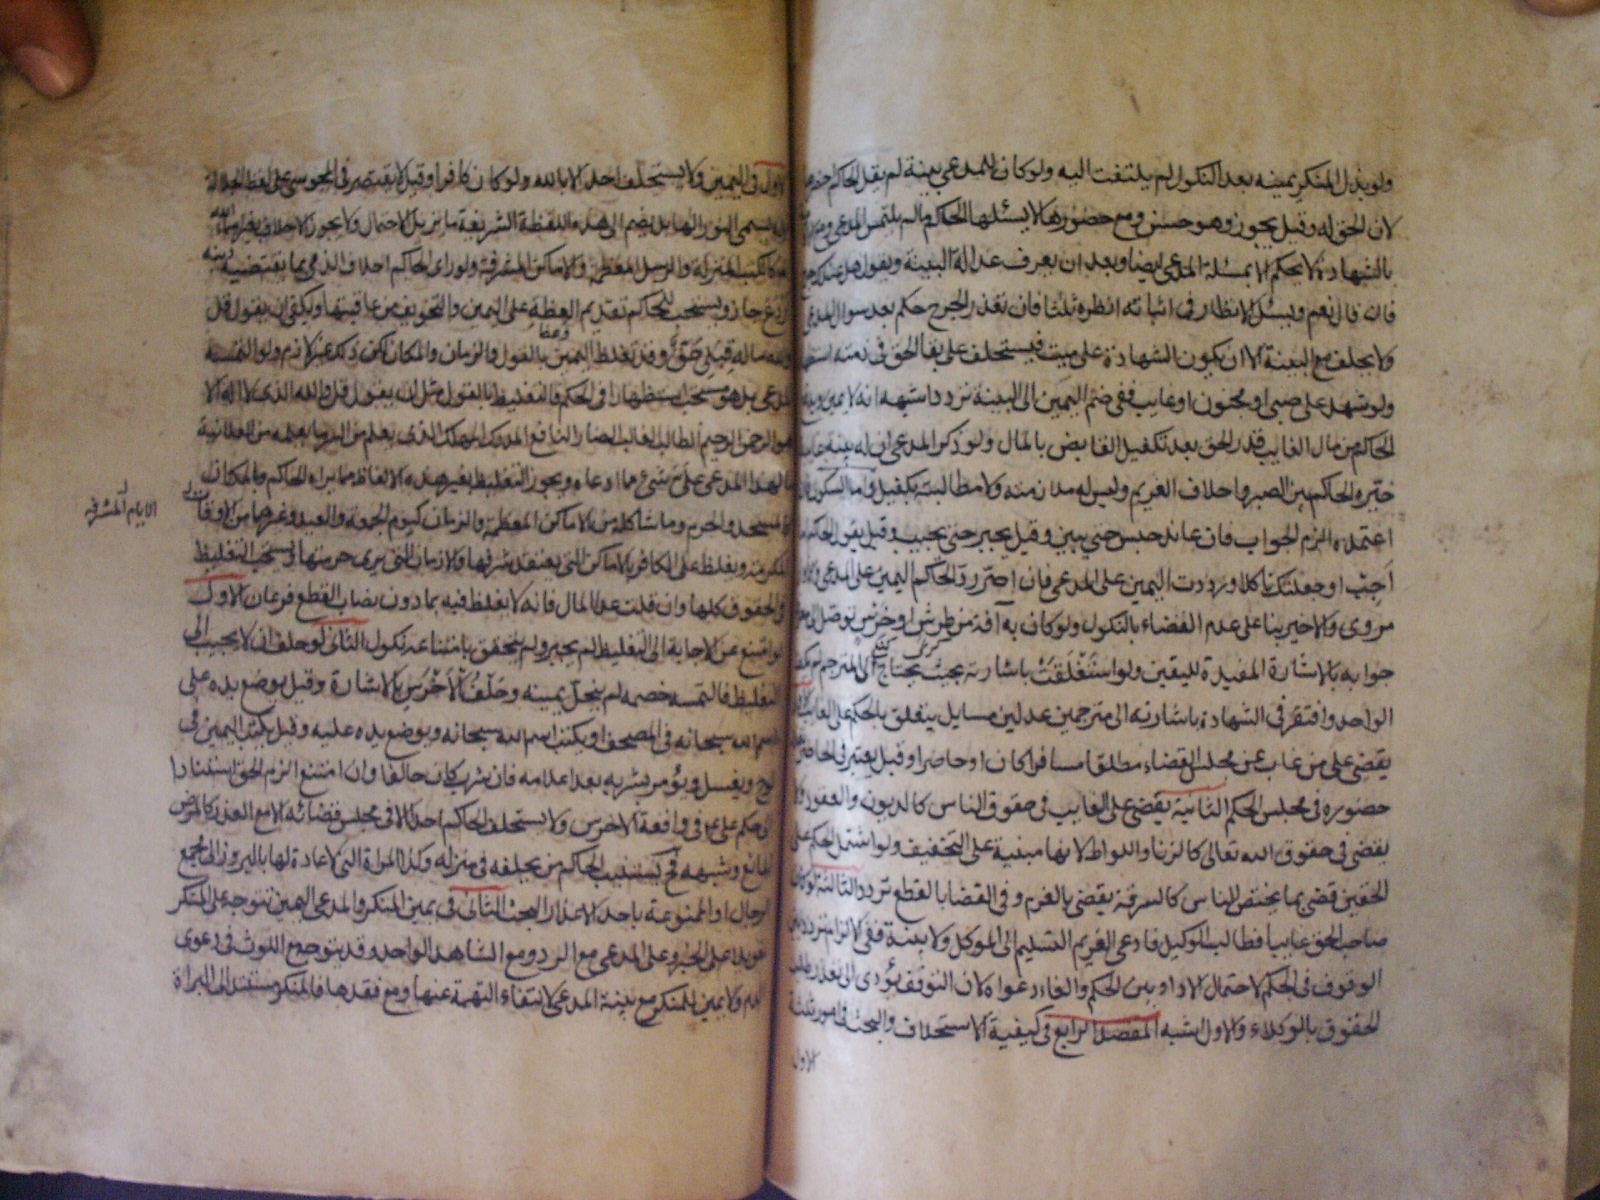 ولو بذل المنكر يمينه بعد النكول لم يلتفت اليه ولو كان للمدعى بينة لم يقل الحاكم احضرها
لان الحق له وقيل يجوز وهو حسن ومع حضورها لا يسئلها الحاكم ما لم يلتمس المدعى ومع
بالشهادة لا يحكم الا بمسئلة المدعى ايضا وبعد ان يعرف عدالة البينة ويقول هل عندك جرح
فان قال نعم وسئل الانظار فى اثباته انظره ثلثا فان تعذر الجرح حكم بعد سؤال المدعى
ولا يحلف مع البينة الا ان يكون الشهادة على ميت فيستحلف على بقا الحق فى ذمته استظهارا
ولو شهد على صبى او مجنون او غايب ففى ضم اليمين الى البينة تردد اشبهه انه لا يمين ويدفع
الحاكم من مال الغايب قدر الحق بعد تكفيل القابض بالمال ولو ذكر المدعى ان له بينة غايبة
خيره الحاكم بين الصبر واحلاف الغريم وليس له ملازمته ولا مطالبته بكفيل واما السكوت فان
اعتمده الزم الجواب فان عاند حبس حتى يبين وقيل يجبر حتى يجيب وقيل يقول الحاكم اما
اجبت او جعلتك ناكلا ورددت اليمين على المدعى فان اصر رد الحاكم اليمين على المدعى والاول
مروى والاخير بنا على عدم القضاء بالنكول ولو كان به آفة من طرش او خرس توصل الى معرفة
جوابه بالاشارة المفيدة لليقين ولو استغلقت اشارته بحيث يحتاج الى المترجم لم يكف
الواحد وافتقر فى الشهادة باشارته الى مترجمين عدلين مسايل يتعلق بالحكم على الغايب الاولى
يقضى على من غاب عن مجلس القضاء مطلقا مسافرا كان او حاضرا وقيل يعتبر فى الحاضر تعذر
حضوره فى مجلس الحكم الثانية يقضى على الغايب فى حقوق الناس كالديون والعقود ولا
يقضى فى حقوق الله تعالى كالزنا واللواط لانها مبنية على التخفيف ولو اشتمل الحكم على
الحقين قضى بما يختص الناس كالسرقة يقضى بالغرم وفى القضا بالقطع تردد الثالثة لو كان
صاحب الحق غايبا فطالب الوكيل فادعى الغريم التسليم الى الموكل ولا بينة ففى الالزام تردد بين
الوقوف فى الحكم لاحتمال الاداء وبين الحكم والغاء دعواه لان التوقف يؤدى الى تعذر طلب
الحقوق بالوكلاء والاول اشبه المقصد الرابع فى كيفية الاستحلاف والبحث فى امور ثلثة
الاول
الاول فى اليمين ولا يستحلف احد الا بالله ولو كان كافرا وقيل لا يقتصر فى المجوسى على لفظ الجلالة
لانه يسمى النور الها بل يضم الى هذه اللفظة الشريفة ما يزيل الاحتمال ولا يجوز الاحلاف بغير اسماء الله
كالكتب المنزلة والرسل المعظمة والاماكن المشرفة ولو راى الحاكم احلاف الذمى بما يقتضيه دينه
اردع جاز ويستحب للحاكم تقديم العظة على اليمين والتخويف من عاقبتها ويكفى ان يقول قل
والله ماله قبلى حق وقد تغلظ اليمين بالقول والزمان والمكان لكن ذلك غير لازم ولو التمسه
المدعى بل هو مستحب استظهارا فى الحكم فالتغليظ بالقول مثل ان يقول قل والله الذى لا اله الا
هو الرحمن الرحيم الطالب الغالب الضار النافع المدرك المهلك الذى يعلم من السر ما يعلمه من العلانية
ما لهذا المدعى على شىء مما ادعاه ويجوز التغليظ بغير هذه الالفاظ مما يراه الحاكم وبالمكان
كالمسجد والحرم وما شاكله من الاماكن المعظمة والزمان كيوم الجمعة والعيد وغيرها من الاوقات
الايام المشرفة
المكرمة ويغلظ على الكافر بالاماكن التى يعتقد شرفها والازمان التى يرى حرمتها ويستحب التغليظ
فى الحقوق كلها وان قلت عدا المال فانه لا يغلظ فيه بما دون نصاب القطع فرعان الاول
لو امتنع عن الاجابة الى التغليظ لم يجبر ولم يتحقق بامتناعه نكول الثانى لو حلف ان لا يجيب الى
التغليظ فالتمسه خصمه لم ينحل يمينه وحلف الاخرس بالاشارة وقيل يوضع يده على
اسم الله سبحانه فى المصحف او يكتب اسم الله سبحانه ويوضع يده عليه وقيل يكتب اليمين فى
لوح ويغسل ويؤمر بشربه بعد اعلامه فان شرب كان حالفا وان امتنع الزم الحق استنادا
الى حكم على ع فى واقعة الاخرس ولا يستحلف الحاكم احدا الا فى مجلس قضائه الا مع العذر كالمرض
المانع وشبهه فح يستنيب الحاكم من يحلفه فى منزله وكذا المراة التى لا عادة لها بالبروز الى مجمع
الرجال او الممنوعة باحد الاعذار البحث الثانى فى يمين المنكر والمدعى اليمين يتوجه على المنكر
تعويلا على الخبر وعلى المدعى مع الرد ومع الشاهد الواحد وقد يتوجه مع اللوث فى دعوى
الدم ولا يمين للمنكر مع بينة المدعى لانتفاء التهمة عنها ومع فقدها فالمنكر مستند الى البراة